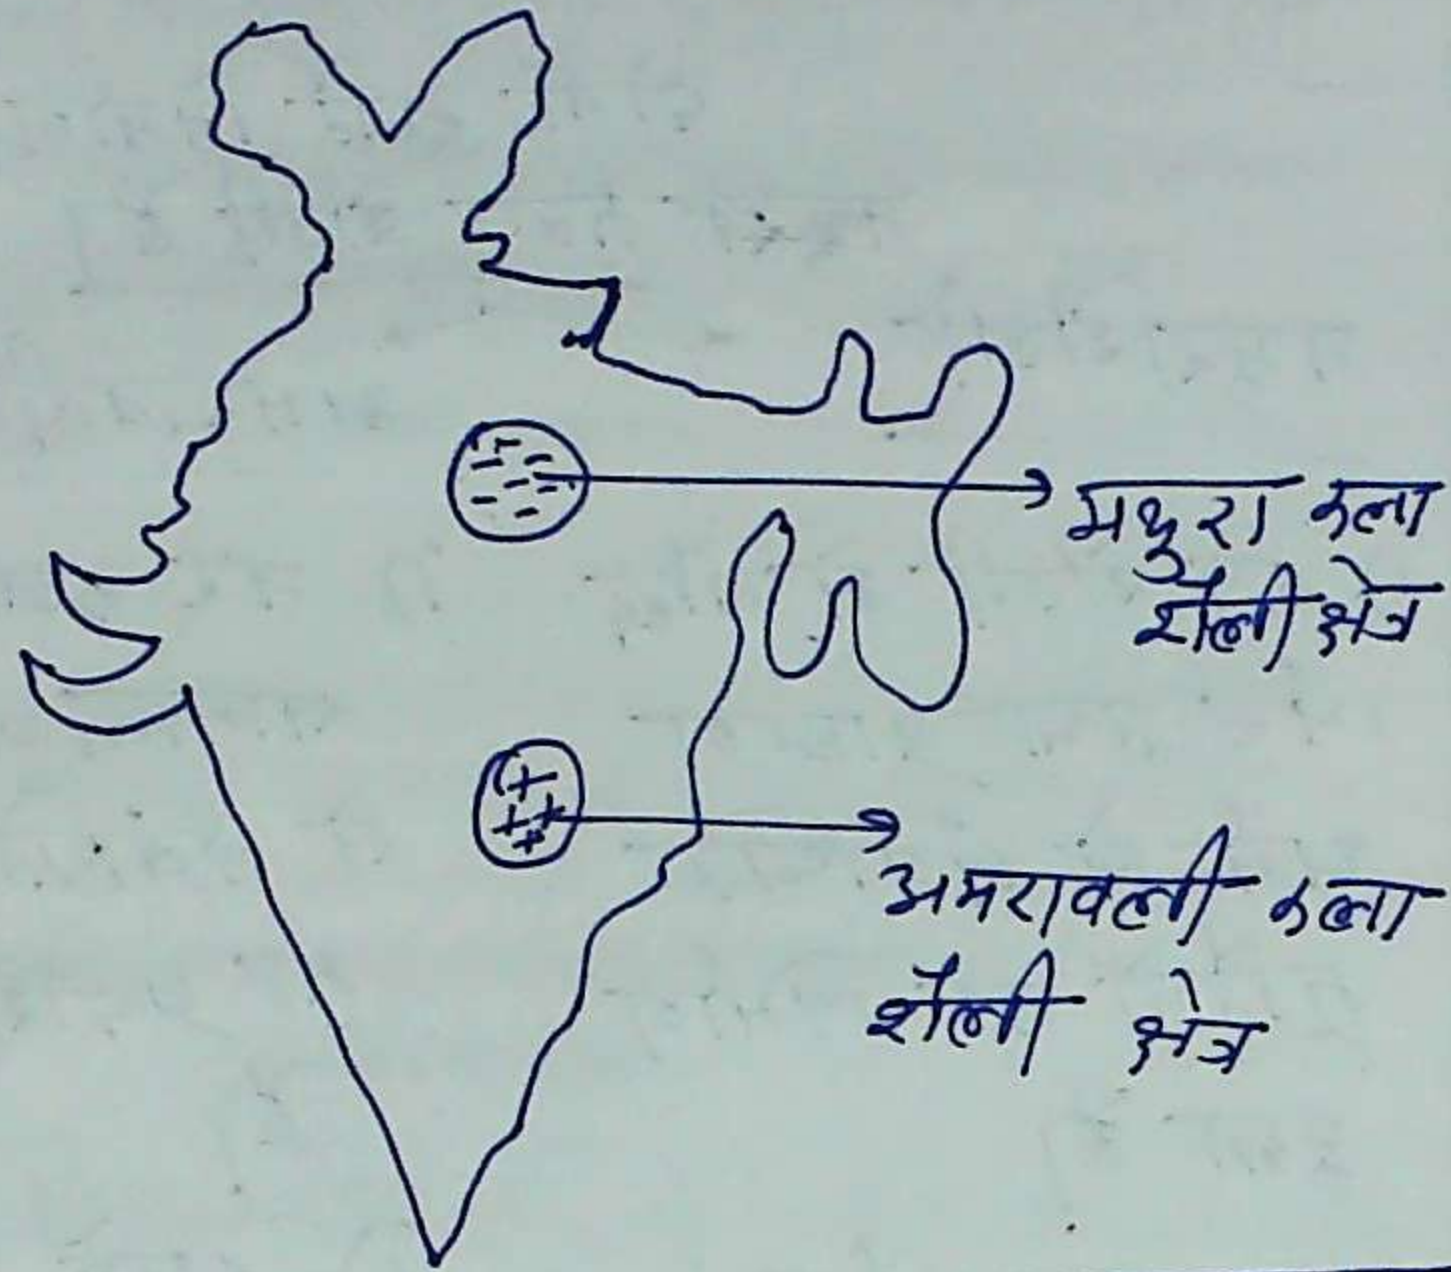 मथुरा कला
शैली क्षेत्र
अमरावली कला
शैली क्षेत्र